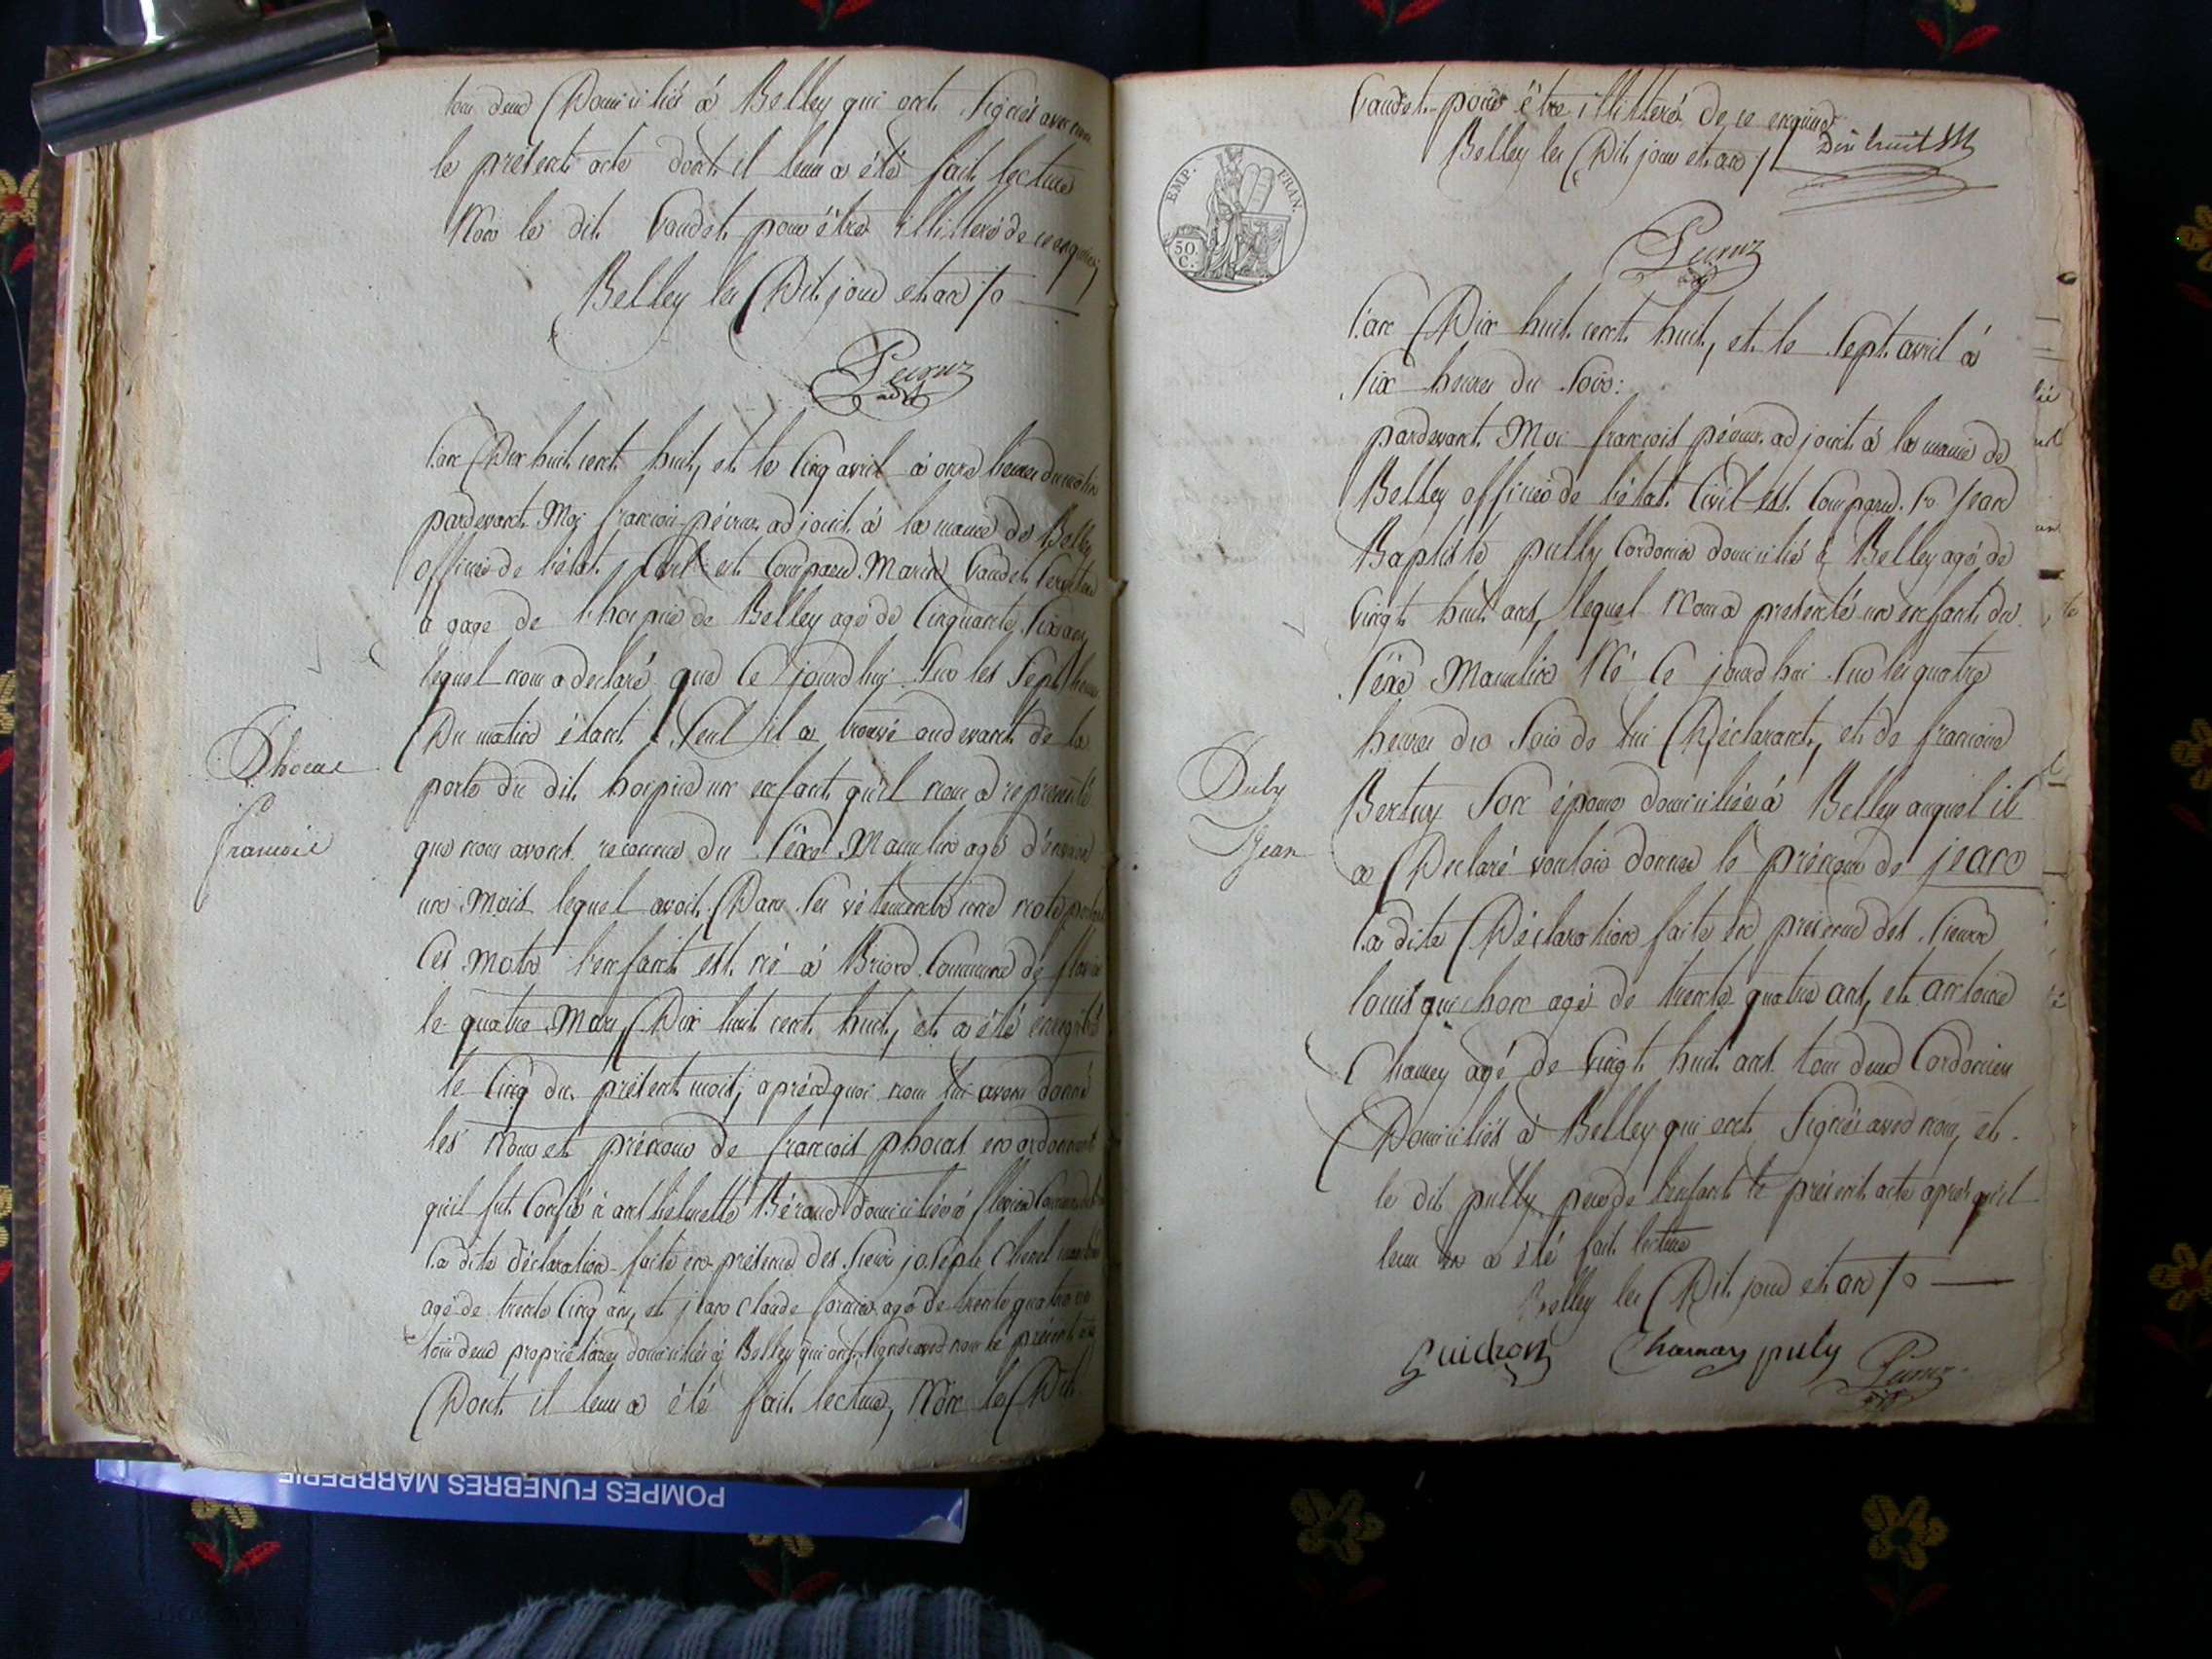 tous deux Domiciliés à Belley qui ont Signés avec nous
le présent acte dont il leur a été fait lecture
Non le dit Vaudet pour être illitteré de ce enquis
Belley les Dit jour et an
L'an Dix huit cent huit, et le Cinq avril à onze heures du matin
pardevant Moi françois adjoint à la mairie de Belley
officier de l'état Civil est Comparu Vaudet
à gage de l'hospice de Belley agé de Cinquante Six ans,
lequel nous a déclaré que Ce jourd'hui Sur les Sept heures
Du matin étant Seul il a trouvé au devant de la
porte du dit hospice un enfant qu'il nous a représenté
que nous avons reconnu du Séxe Masculin agé d'environ
un Mois lequel avoit Dans Ses vêtements une note portant
Ces Mots l'enfant est né à Briord Commune de
le quatre Mars Dix huit cent huit, et a été enregistré
le Cinq du présent mois; après quoi nous lui avons donné
les nom et prénom de françois phocas en ordonnant
qu'il fut Confié à anthelmette Béraud domiciliée à
La dite déclaration faite en présence des Sieurs joseph
agé de trente Cinq ans, et jean Claude agé de trente quatre ans
tous deux propriétaires domiciliés à Belley qui ont Signés avec nous le présent acte
Dont il leur a été fait lecture, Non le Dit
Phocas
françois
Vaudet pour être illitteré de ce enquis
Belley les Dit jour et an
EMP. FRAN.
50 C.
L'an Dix huit cent huit, et le Sept avril à
Six heures du Soir:
pardevant Moi françois adjoint à la mairie de
Belley officier de l'état Civil est Comparu Sr Jean
Baptiste pully Cordonier domicilié à Belley agé de
Vingt huit ans, lequel Nous a présenté un enfant du
Séxe Masculin Né Ce jourd'hui Sur les quatre
heures du Soir de lui Déclarant, et de françoise
Son épouse domiciliée à Belley auquel il
a Déclaré vouloir donner le prénom de jean
La dite Déclaration faite en présence des Sieurs
louis guichon agé de trente quatre ans, et antoine
Chamey agé de Vingt huit ans tous deux Cordoniers
Domiciliés à Belley qui ont Signés avec nous, et
le dit pully père de l'enfant le présent acte après qu'il
leur en a été fait lecture
Belley les Dit jour et an
Puly
Jean
Guichon puly
POMPES FUNEBRES MARBRERIE